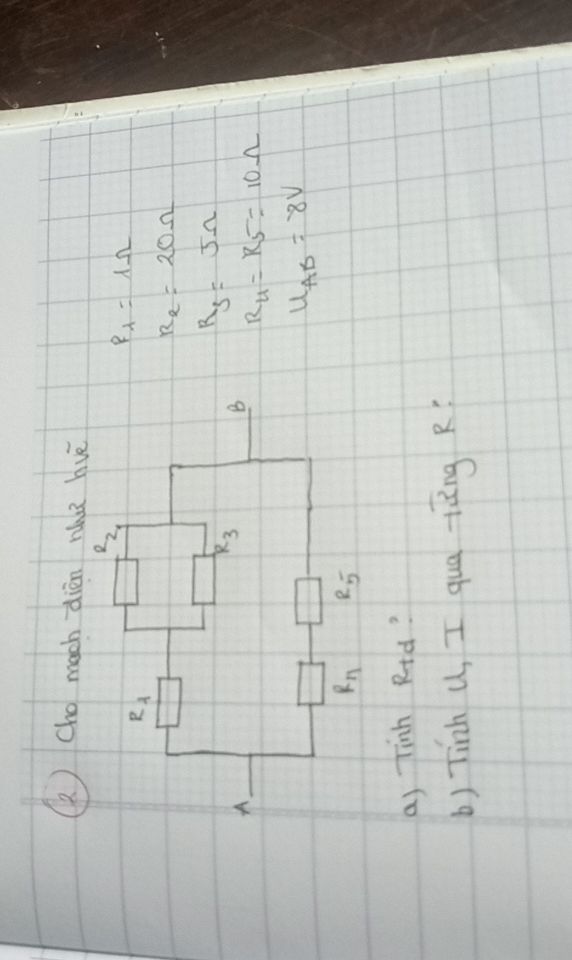 2) Cho mạch điện như hvẽ
R1
R2
R3
A
B
R4
R5
R1 = 1Ω
R2 = 20Ω
R3 = 5Ω
R4 = R5 = 10Ω
UAB = 8V
a) Tính Rtđ?
b) Tính U, I qua từng R?